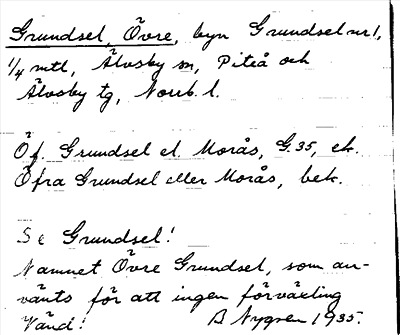 Grundsel, Övre, byn Grundsel nr 1,
1/4 mtl, Älvsby sn, Piteå och
Älvsby tg, Norrb. l.
Öf. Grundsel el. Morås, G. 35, ek.
Öfra Grundsel eller Morås, bek.
Se Grundsel!
Namnet Övre Grundsel, som an-
vänts för att ingen förväxling
Vänd! B Nygren 1935.